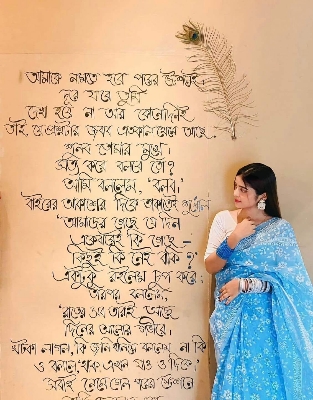 আমাকে নামতে হবে পরের স্টেশনেই,
দূরে যাবে তুমি
দেখা হবে না আর কোনোদিনই
তাই, যে প্রশ্নটার জবাব এতকাল থেমে আছে
শুনব তোমার মুখে।
সত্য করে বলবে তো?
আমি বললেম, 'বলব।'
বাইরের আকাশের দিকে তাকিয়েই শুধোল
'আমাদের গেছে যে দিন
একেবারেই কি গেছে –
কিছুই কি নেই বাকি?'
একটুকু রইলেম চুপ করে;
তারপর বললেম,
'রাতের সব তারাই আছে
দিনের আলোর গভীরে।'
খটকা লাগল, কী জানি বানিয়ে বললেম না কি
ও বললে, 'থাক্ এখন যাও ও দিকে'
সবাই নেমে গেল পরের স্টেশনে